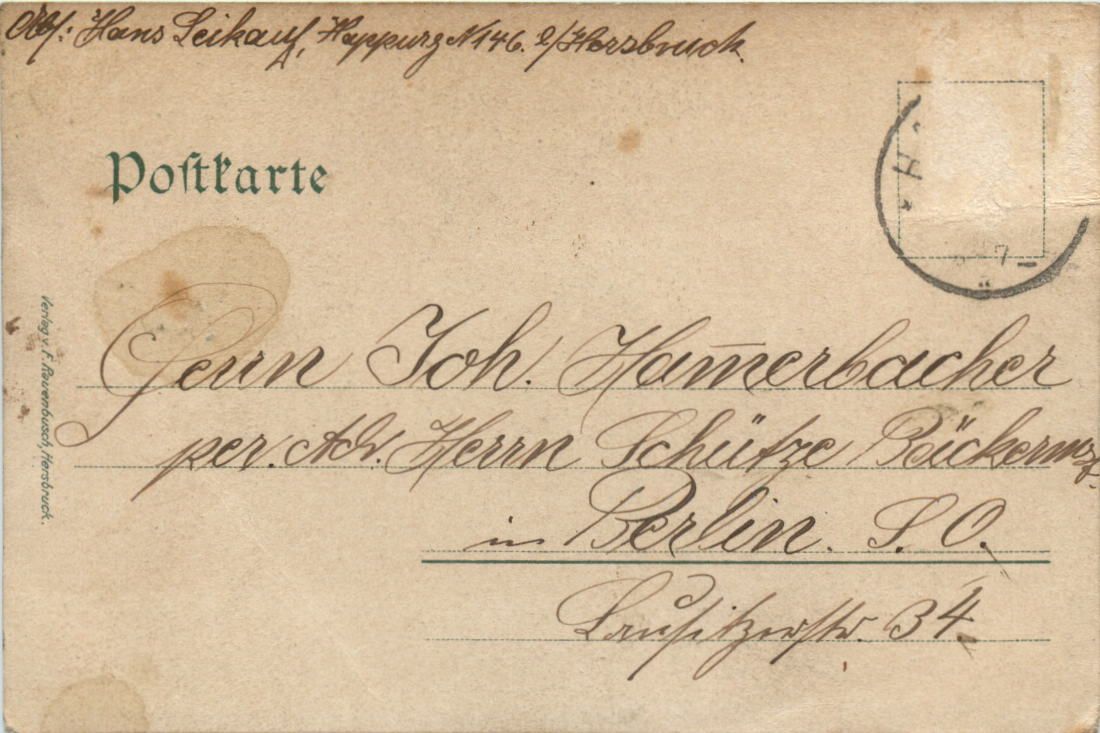 Abs: Hans Leikauf, Happurg N 146. b/Hersbruck.
Postkarte
* H
7
Verlag v. F. Ravenbusch, Hersbruck.
Herrn Joh. Ham̅erbacher
per. Ad. Herrn Schütze Bäckermst.
in Berlin. S. O.
Lausitzerstr. 34